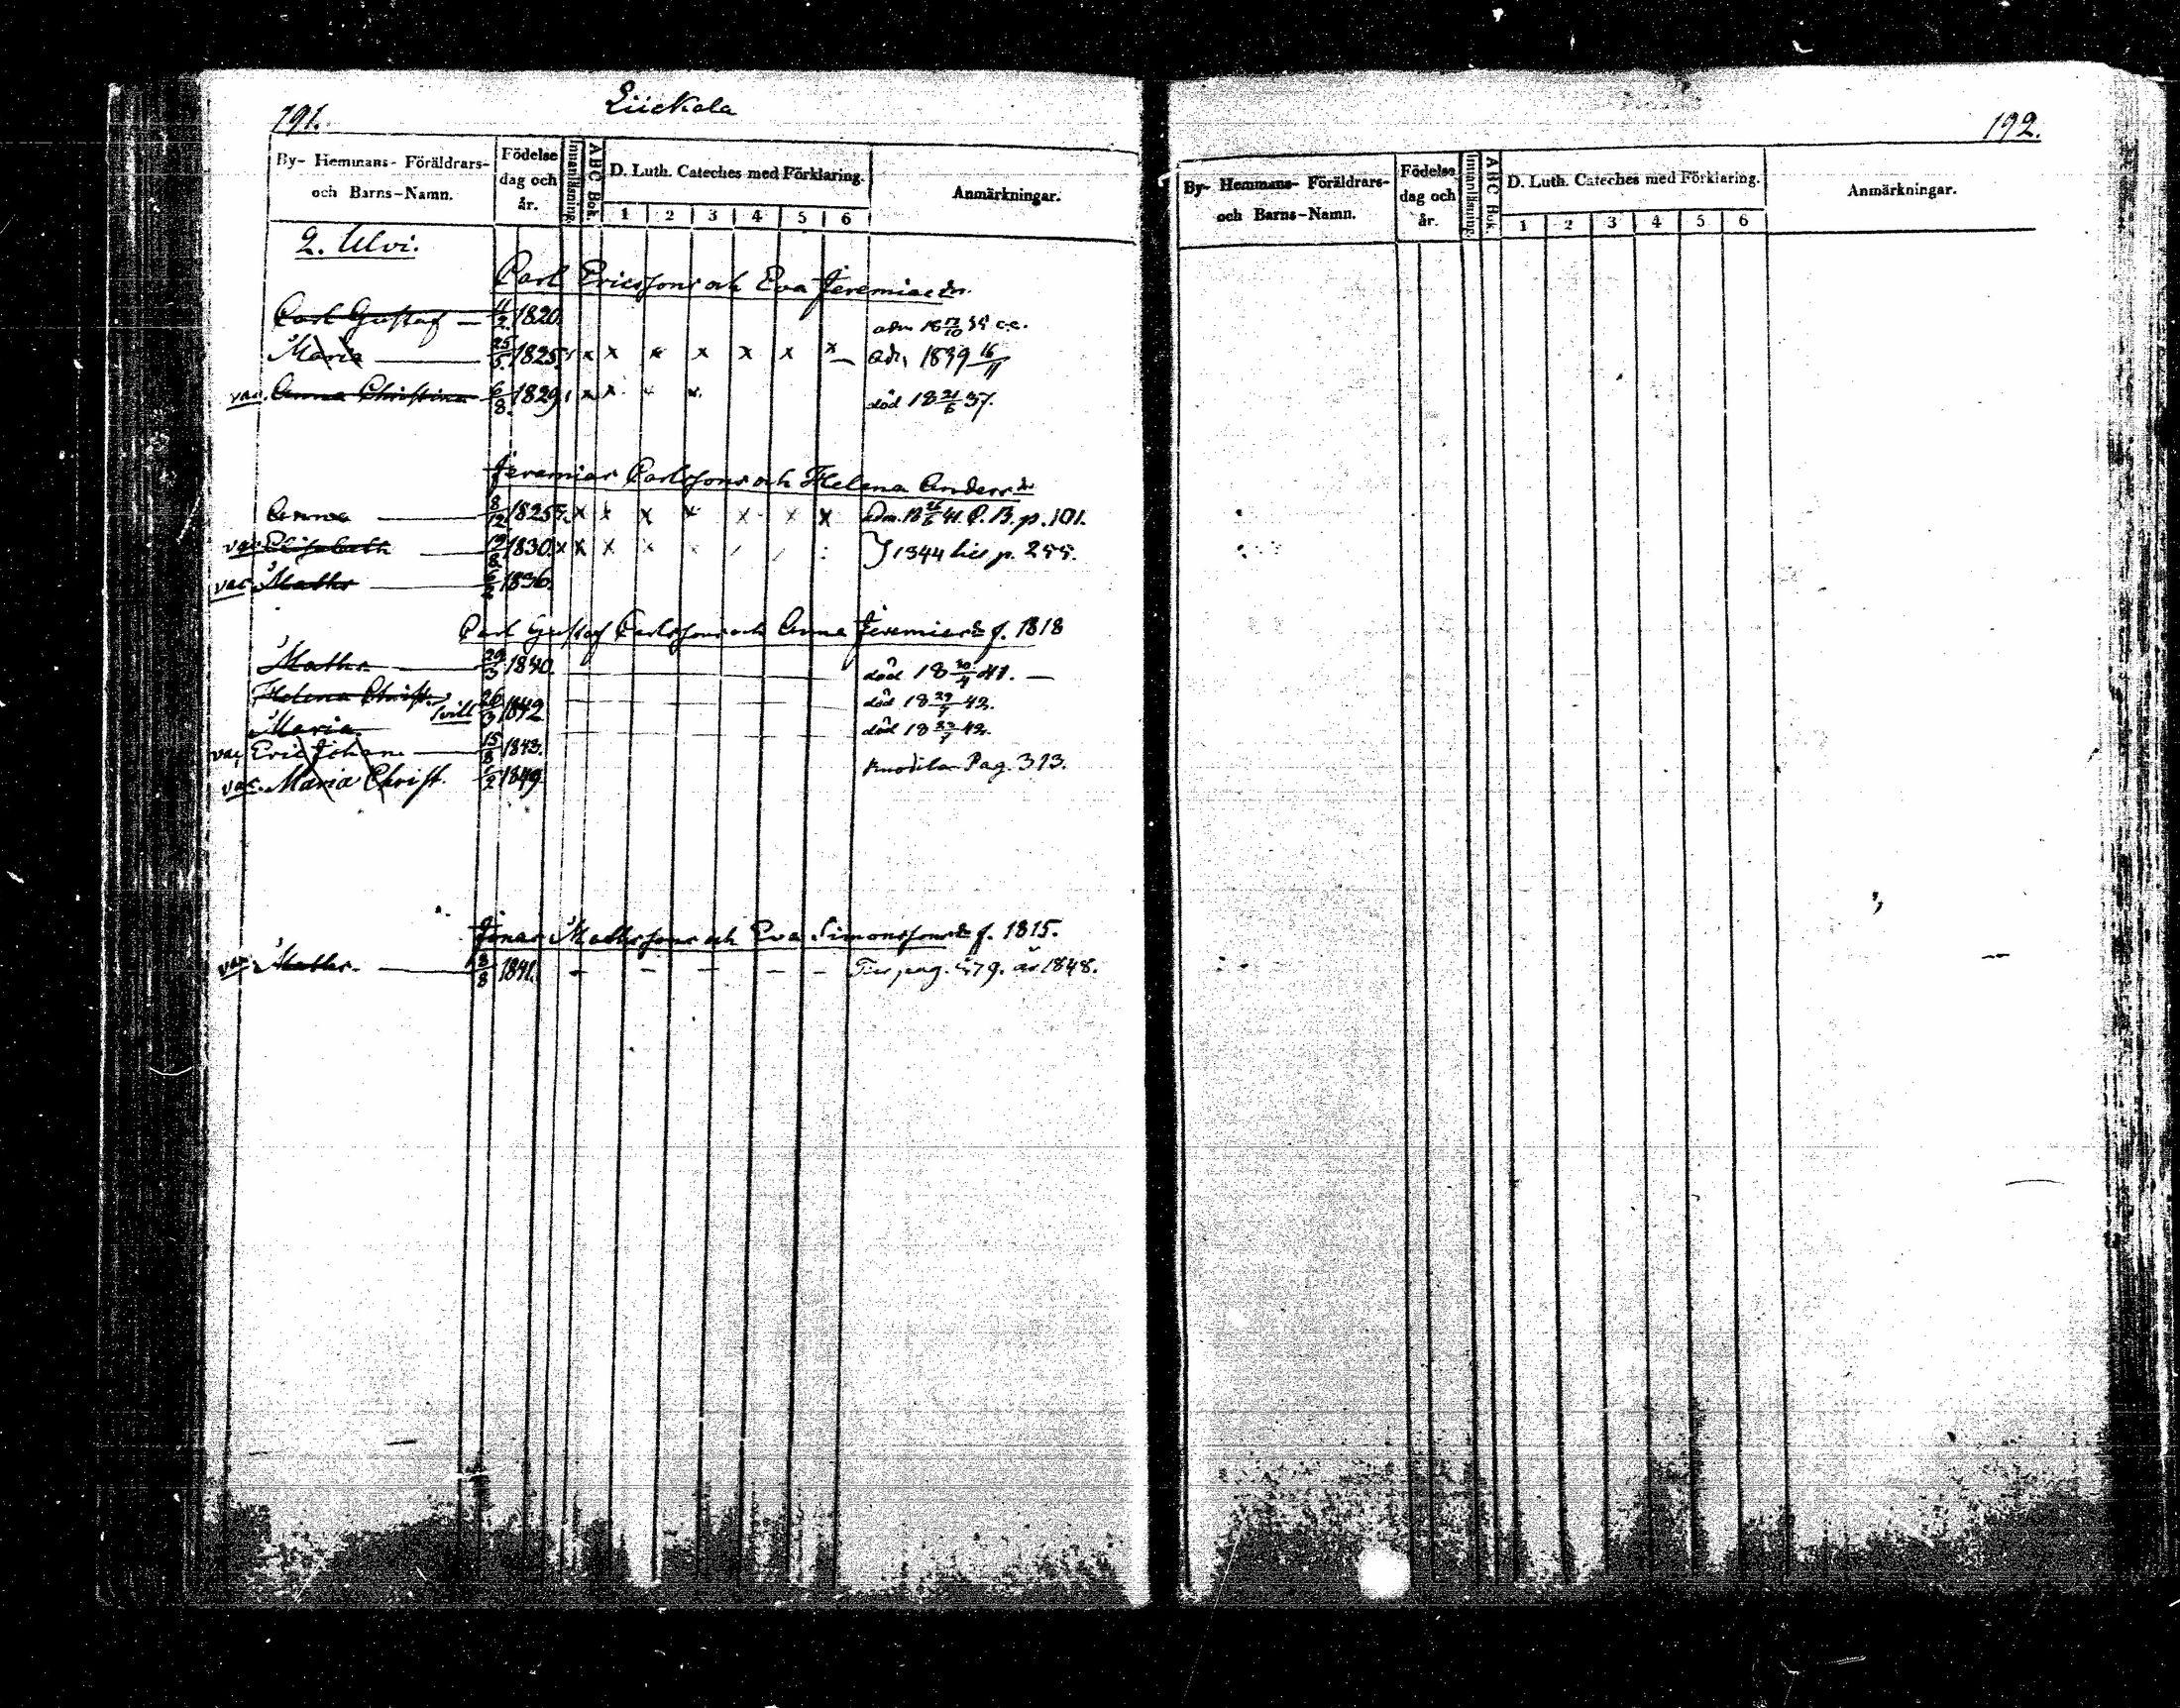 191.
Liickala
By- Hemmans- Föräldrars- och Barns-Namn.
Födelse dag och år.
Innanläsning.
A B C Bok.
D. Luth. Cateches med Förklaring.
1 2 3 4 5 6
Anmärkningar.
2. Ulvi.
Carl Ericssons och Eva Jeremiaedr.
Carl Gustaf — 11/2 1820.
Maria 25/5 1825 x x x x x x x — adm 1839 16/11
vac. Anna Christina 6/8 1829 x x x x död 18 21/6 37.
Jeremias Carlssons och Helena Andersdr
Anna 8/12 1825 x x x x x x x Adm. 18 26/6 41. C.B. p. 101.
vac Elisabeth 19/8 1830 x x x x x } 1844 hic p. 255.
vac Maths 1836.
Carl Gustaf Carlssons och Anna Jeremiasdr f. 1818
Maths 29/3 1840. död 18 20/4 41. —
Helena Christ. död 18 29/7 42.
tvill 26/3 1842
Maria död 18 23/7 42.
vac Eric Johan. 15/8 1843.
vac. Maria Christ. 1849. Knosila Pag. 313.
Jonas Mathssons och Eva Simonssonsdr f. 1815.
vac Maths. 18/8 1841. - - - - - pag. 479. år 1848.
192.
By- Hemmans- Föräldrars- och Barns-Namn.
Födelse dag och år.
Innanläsning.
A B C Bok.
D. Luth. Cateches med Förklaring.
1 2 3 4 5 6
Anmärkningar.